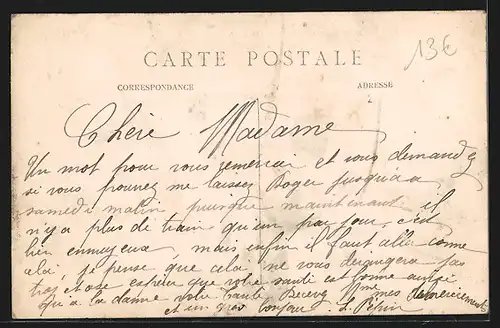 13€
CARTE POSTALE
CORRESPONDANCE ADRESSE
Chère Madame
Un mot pour vous remercier et vous demandez
si vous pouvez me laissez Roger jusqu'à
samedi matin puisque maintenant il
n'y a plus de train qu'un par jour, c'est
bien ennuyeux, mais enfin il faut aller comme
cela, je pense que cela ne vous dérangera pas
trop et ose espérer que votre santé est bonne ainsi
qu'a la dame votre tante Recevez Mme mes remerciements
et un gros bonjour